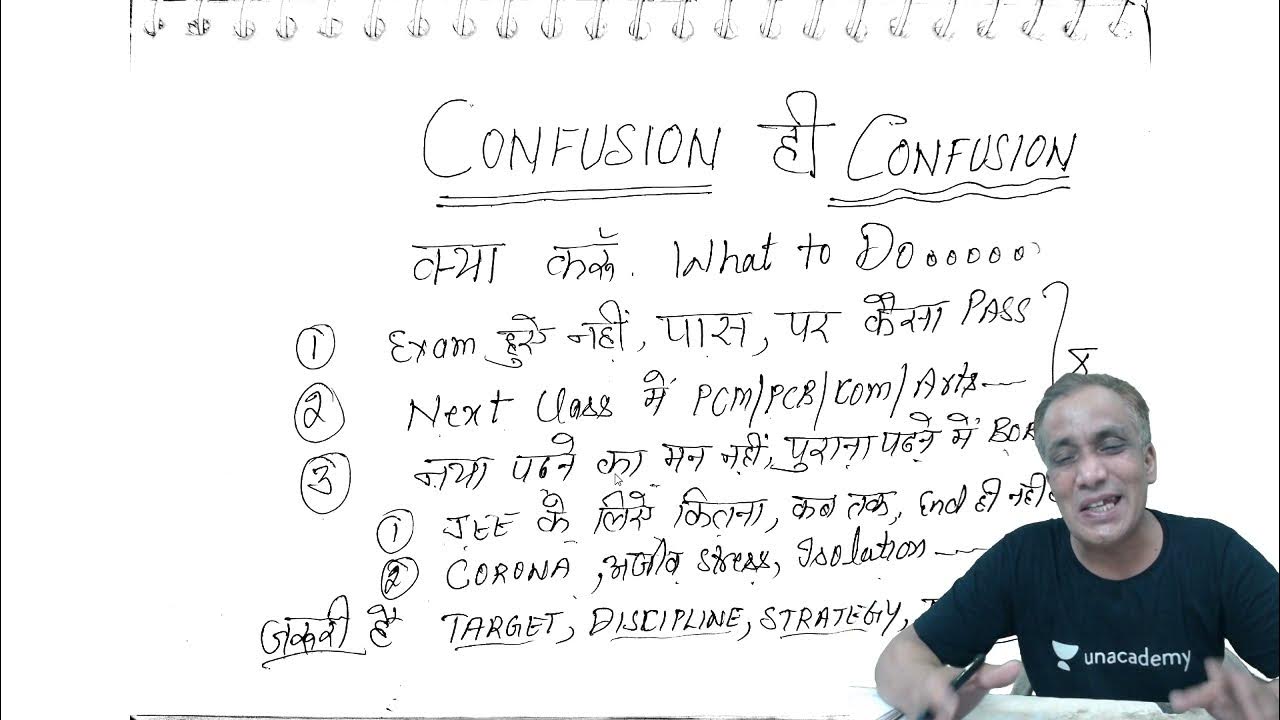 CONFUSION ही CONFUSION
क्या करूँ. What to Do......
① Exam हुऐ नहीं, पास, पर कैसा PASS
② Next Class में PCM/PCB/Com/Arts—
③ नया पढने का मन नहीं, पुराना पढने में
① JEE के लिऐ कितना, कब तक, End ही नही
② CORONA, अजीब stress, Isolation —
जरूरी है TARGET, DISCIPLINE, STRATEGY,
unacademy